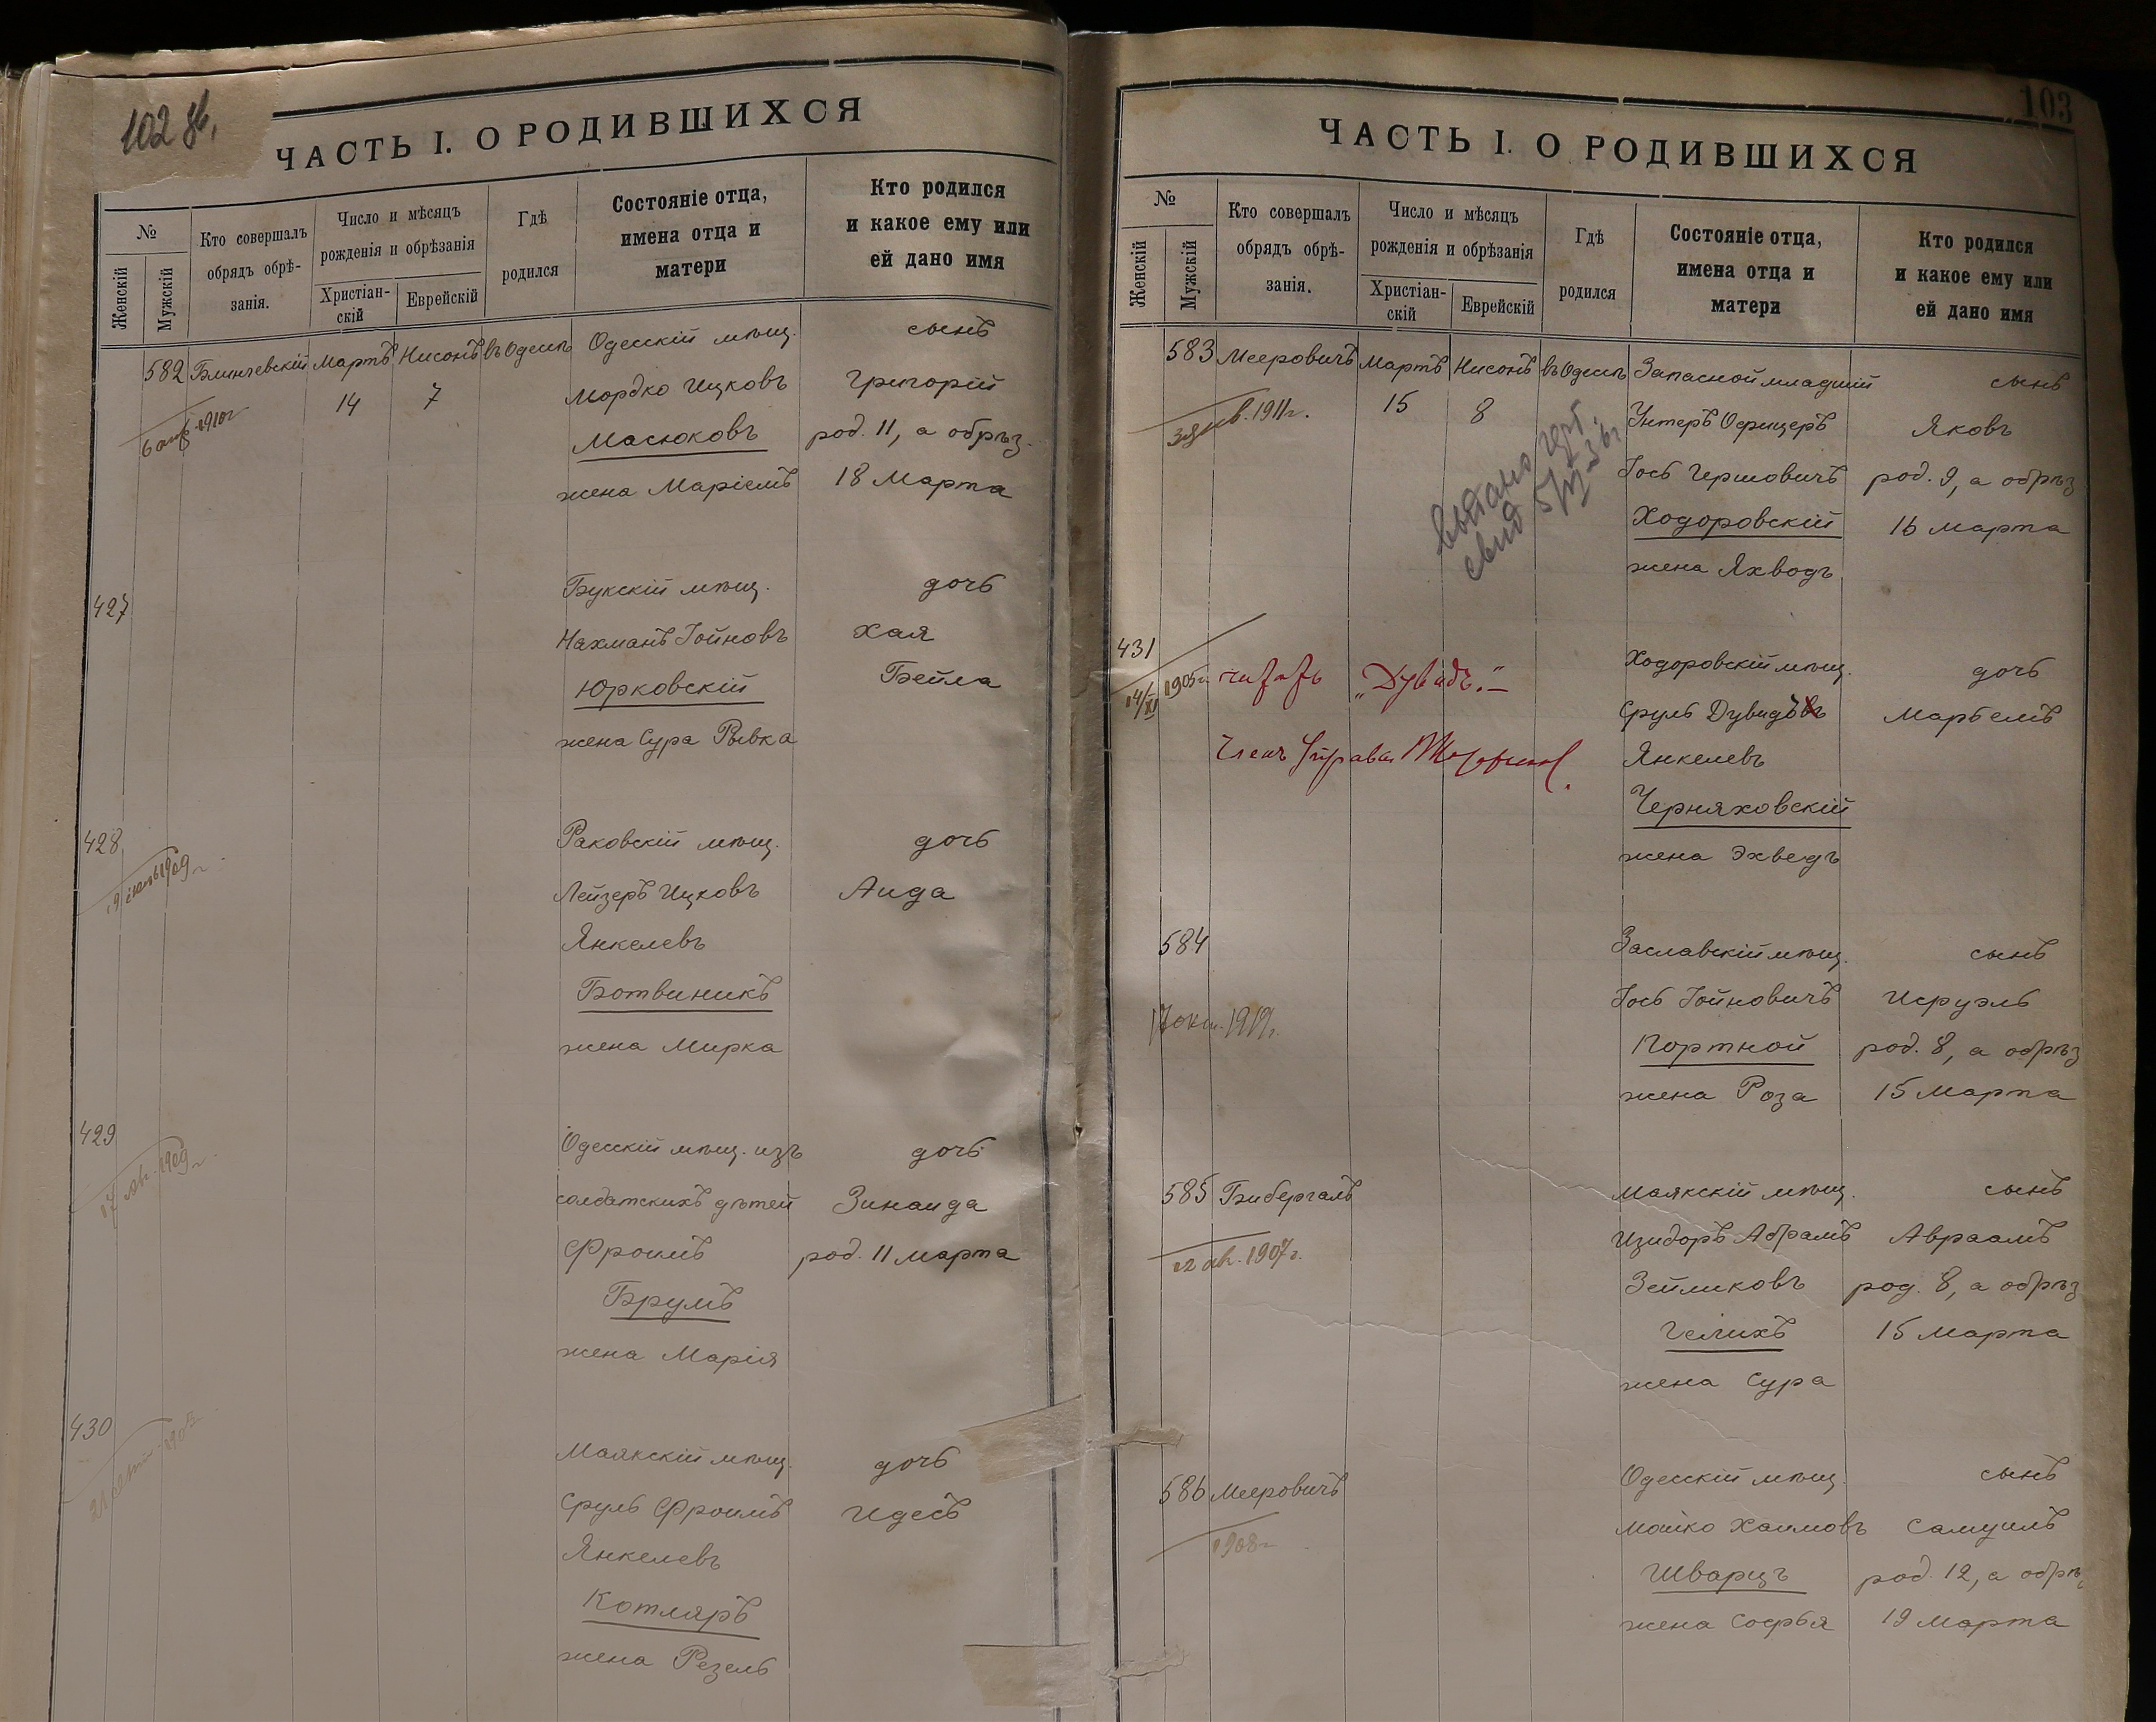 102 об,
ЧАСТЬ I. О РОДИВШИХСЯ
№
Женскій
Мужскій
Кто совершалъ
обрядъ обрѣ-
занія.
Число и мѣсяцъ
рожденія и обрѣзанія
Христіан-
скій
Еврейскій
Гдѣ
родился
Состояніе отца,
имена отца и
матери
Кто родился
и какое ему или
ей дано имя
582 Блинчевскій Мартъ Нисонъ въ Одессѣ Одесскій мѣщ. сынъ
14 7 Мордко Ицковъ Григорій
6 апр. 1910г
Масюковъ род. 11, а обрѣз.
жена Маріемъ 18 Марта
427 Букскій мѣщ. дочь
Нахманъ Іойновъ Хая
Юрковскій Бейла
жена Сура Рывка
428 Раковскій мѣщ. дочь
1909г
Лейзеръ Ицковъ Аида
Янкелевъ
Ботвиникъ
жена Мирка
429 Одесскій мѣщ. изъ дочь
17 ав. 1909г.
солдатскихъ дѣтей Зинаида
Фроимъ род. 11 марта
Брумъ
жена Марія
430 Маякскій мѣщ. дочь
Сруль Фроимъ Идесъ
Янкелевъ
Котляръ
жена Резель
103
ЧАСТЬ I. О РОДИВШИХСЯ
№
Женскій
Мужскій
Кто совершалъ
обрядъ обрѣ-
занія.
Число и мѣсяцъ
рожденія и обрѣзанія
Христіан-
скій
Еврейскій
Гдѣ
родился
Состояніе отца,
имена отца и
матери
Кто родился
и какое ему или
ей дано имя
583 Мееровичъ Мартъ Нисонъ въ Одессѣ Запасной младшій сынъ
1911г. 15 8 Унтеръ Офицеръ Яковъ
выдано
свид
Іось Гершовичъ род. 9, а обрѣз
Ходоровскій 16 марта
жена Яхводъ
431 Ходоровскій мѣщ. дочь
14/XI 1905г. читать „Дувидъ".—
Сруль Дувидъвъ Марьемъ
Членъ Управы
Янкелевъ
Черняховскій
жена Эхведъ
584 Заславскій мѣщ. сынъ
Іось Іойновичъ Исруэль
17 окт. 1912г.
Портной род. 8, а обрѣз
жена Роза 15 Марта
585 Бибергалъ Маякскій мѣщ. сынъ
12 ав. 1907г.
Изидоръ Абрамъ Авраамъ
Зейликовъ род. 8, а обрѣз
Гелихъ 15 Марта
жена Сура
586 Мееровичъ Одесскій мѣщ. сынъ
1908г
Мойко Хаимовъ Самуилъ
Шварцъ род. 12, а обрѣз
жена Софья 19 марта